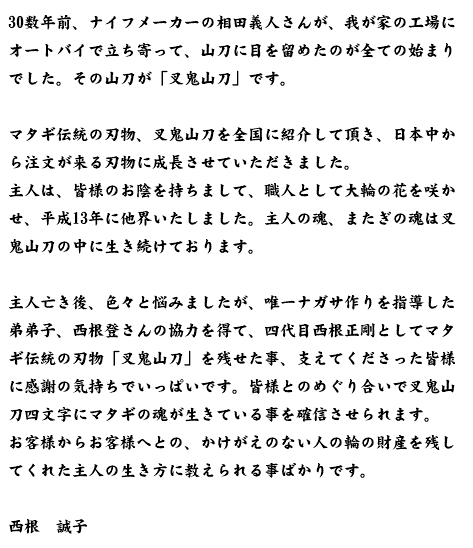 30数年前、ナイフメーカーの相田義人さんが、我が家の工場に
オートバイで立ち寄って、山刀に目を留めたのが全ての始まり
でした。その山刀が「叉鬼山刀」です。
マタギ伝統の刃物、叉鬼山刀を全国に紹介して頂き、日本中か
ら注文が来る刃物に成長させていただきました。
主人は、皆様のお陰を持ちまして、職人として大輪の花を咲か
せ、平成13年に他界いたしました。主人の魂、またぎの魂は叉
鬼山刀の中に生き続けております。
主人亡き後、色々と悩みましたが、唯一ナガサ作りを指導した
弟弟子、西根登さんの協力を得て、四代目西根正剛としてマタ
ギ伝統の刃物「叉鬼山刀」を残せた事、支えてくださった皆様
に感謝の気持ちでいっぱいです。皆様とのめぐり合いで叉鬼山
刀四文字にマタギの魂が生きている事を確信させられます。
お客様からお客様へとの、かけがえのない人の輪の財産を残し
てくれた主人の生き方に教えられる事ばかりです。
西根　誠子